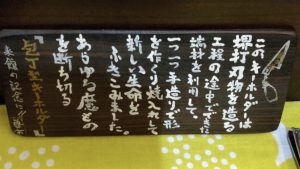 このキーホルダーは
堺打刃物を造る
工程の途中でできた
端材を利用して
一つ一つ手造りで形
を作り焼入れして
新しい生命を
ふきこみました。
あらゆる魔を
を断ち切る
「包丁型キーホルダー」
来館の記念に!!